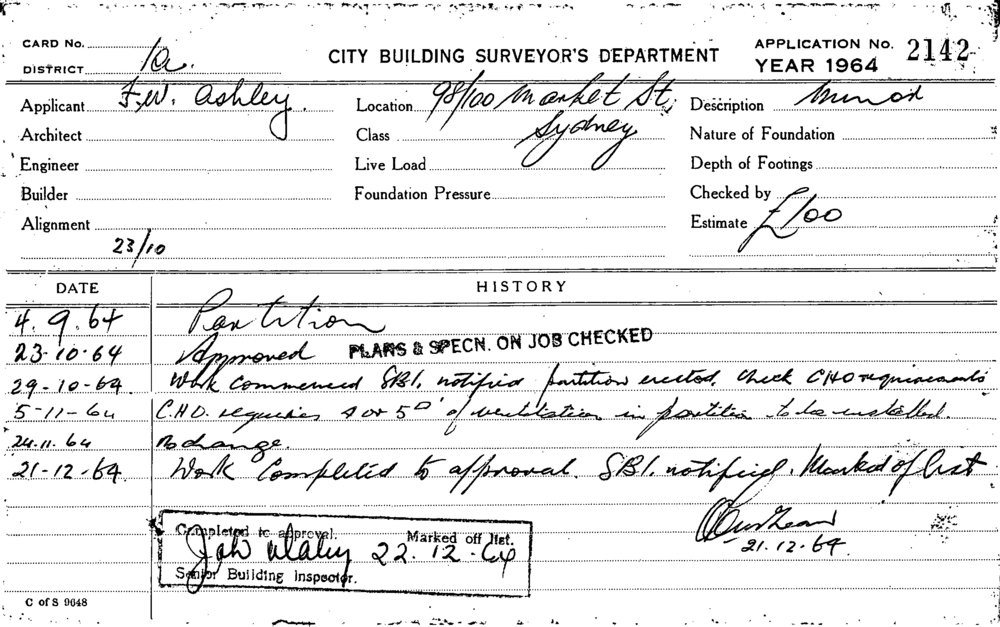 CARD No. CITY BUILDING SURVEYOR'S DEPARTMENT APPLICATION No. 2142
DISTRICT 1a. YEAR 1964
Applicant F.W. Ashley. Location 98/100 Market St, Description Minor
Architect Class Sydney Nature of Foundation
Engineer Live Load Depth of Footings
Builder Foundation Pressure Checked by
Alignment Estimate £100
23/10
DATE HISTORY
4.9.64 Partition
23-10-64 Approved PLANS & SPECN. ON JOB CHECKED
29-10-64 Work commenced SBI. notified partition erected. Check CHO requirements
5-11-64 C.H.O. requires 4 or 5□' of ventilation in partition to be installed.
24.11.64 No change.
21-12-64 Work Completed to approval. SBI. notified. Marked of list
21.12.64.
Completed to approval. Marked off list.
22.12.64
Senior Building Inspector.
C of S 9648